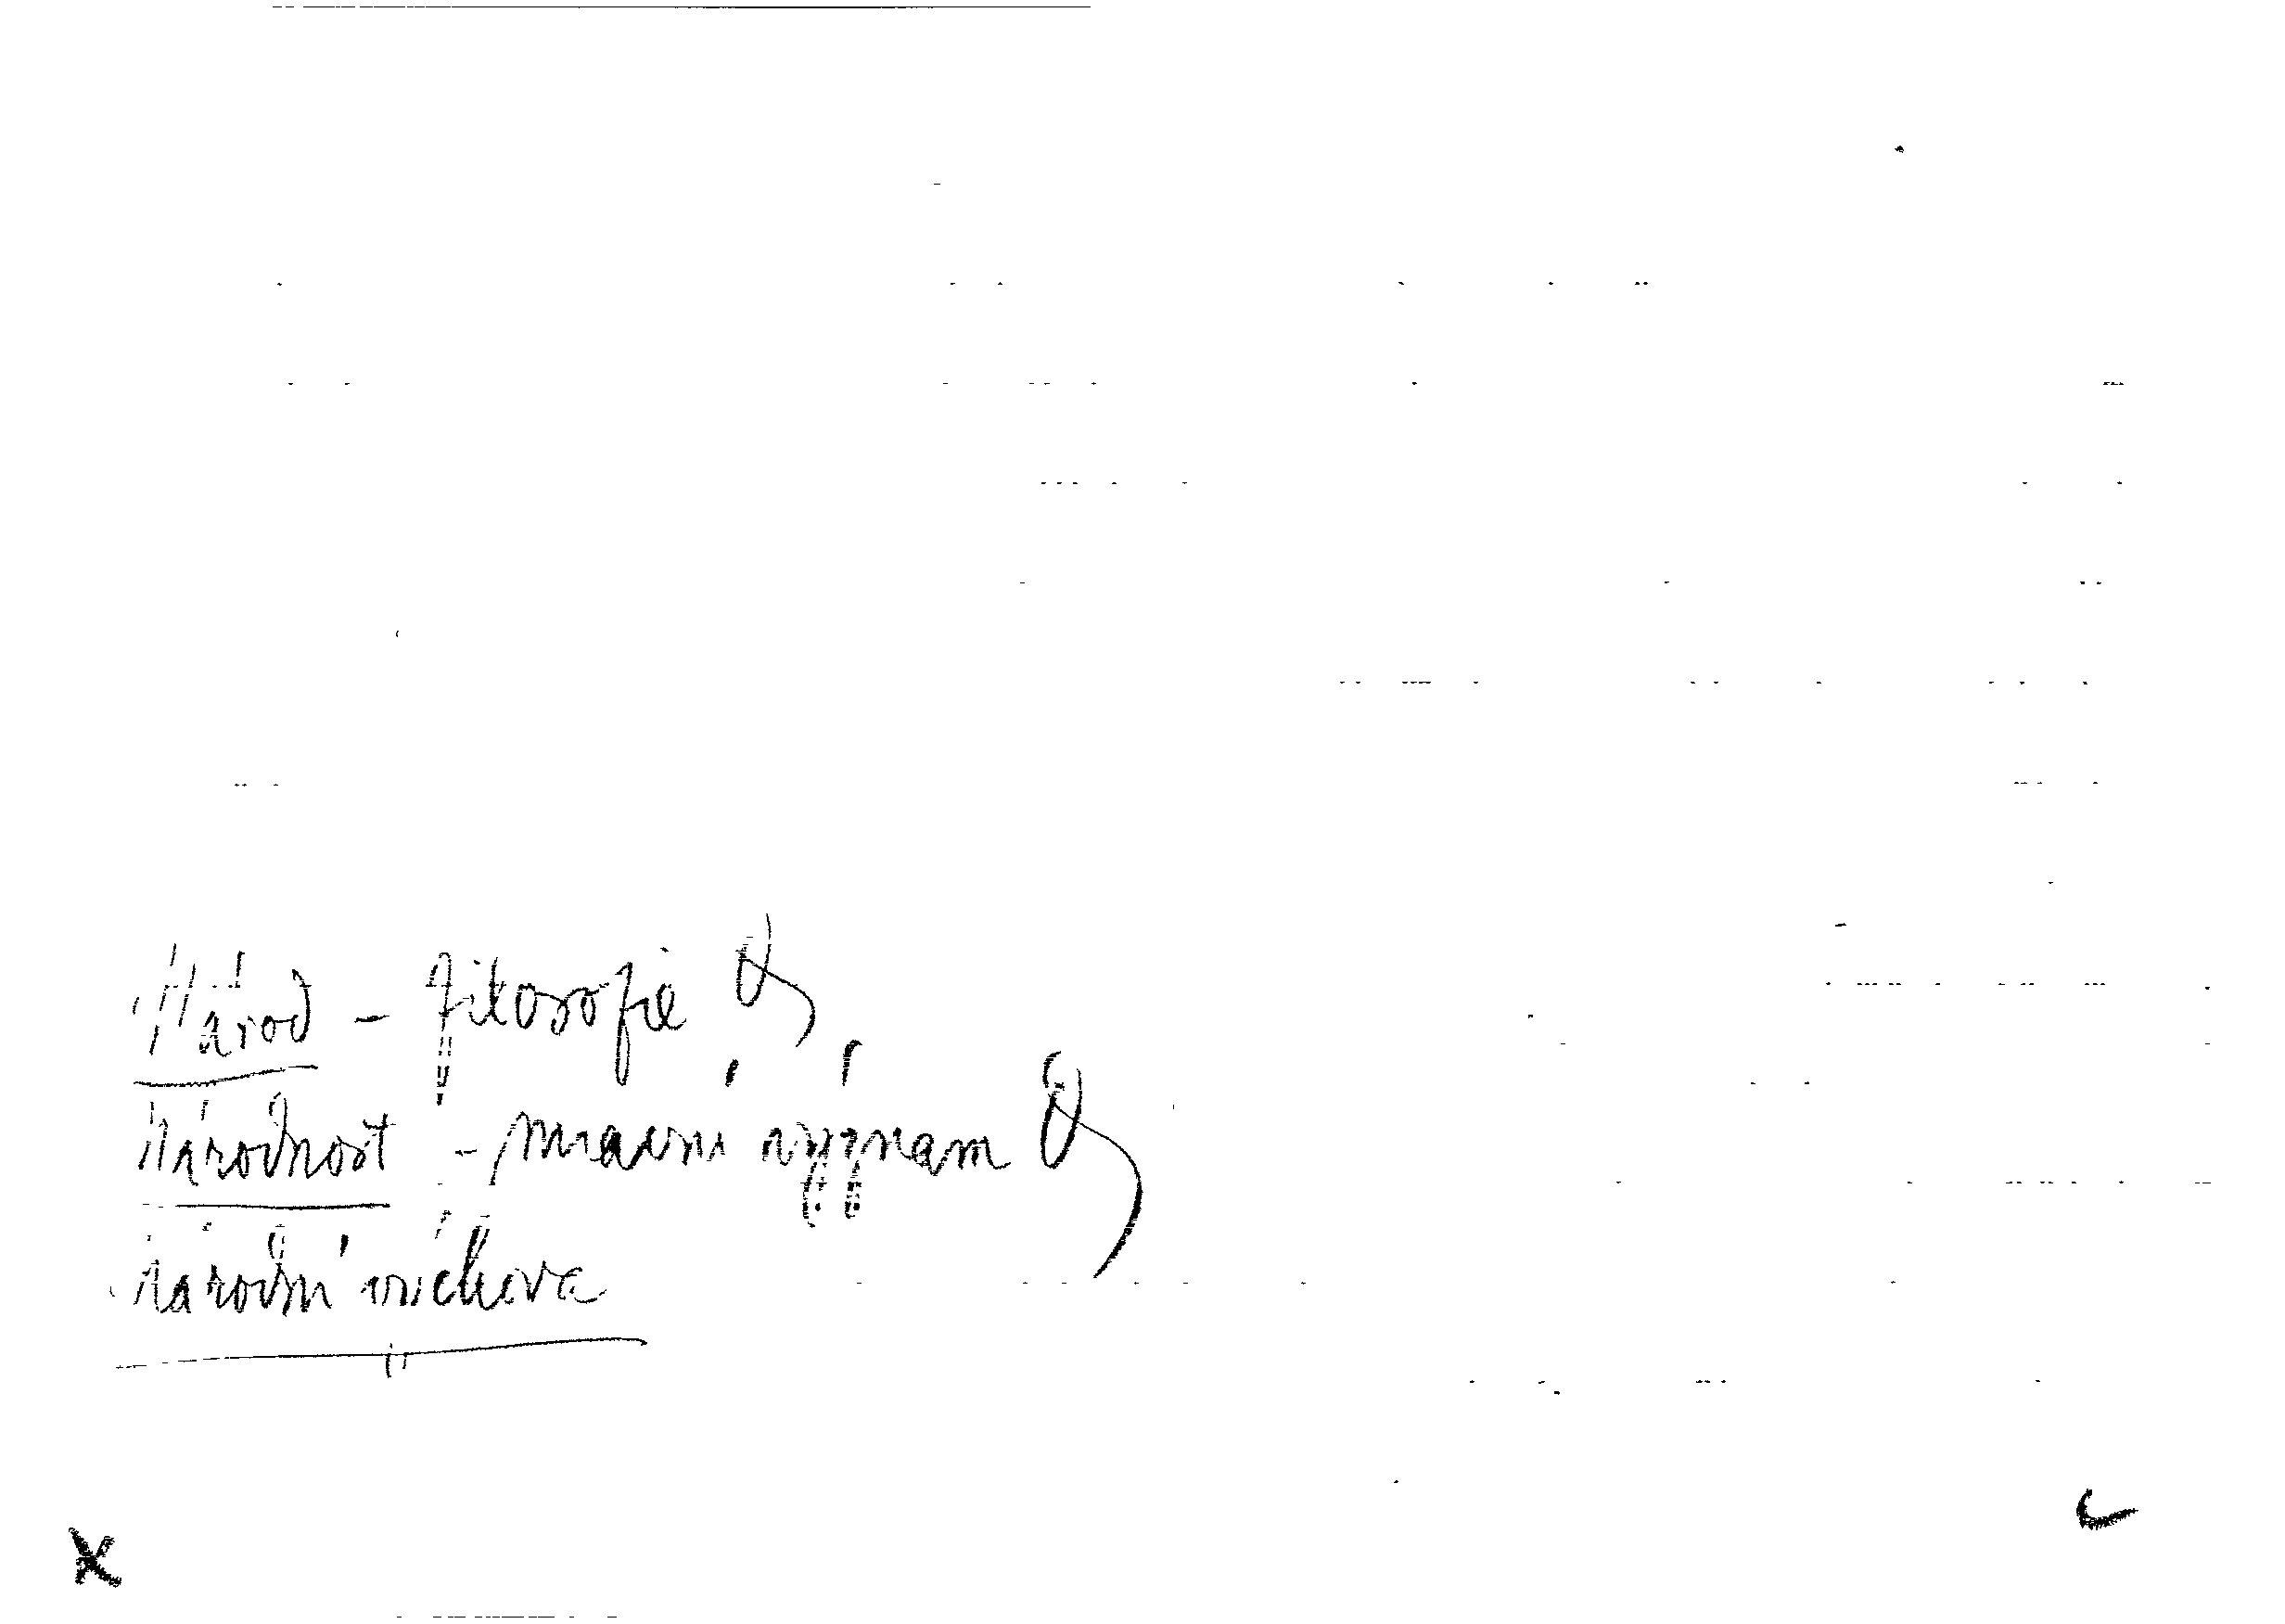 Národ – filosofie
Národnost – mravní význam
Národní výchova